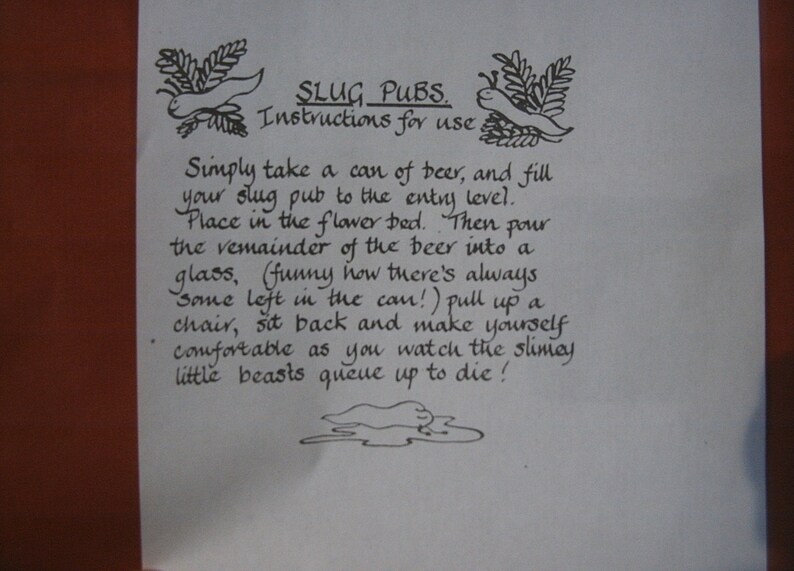 SLUG PUBS.
Instructions for use
Simply take a can of beer, and fill
your slug pub to the entry level.
Place in the flower bed. Then pour
the remainder of the beer into a
glass, (funny how there's always
some left in the can!) pull up a
chair, sit back and make yourself
comfortable as you watch the slimey
little beasts queue up to die!